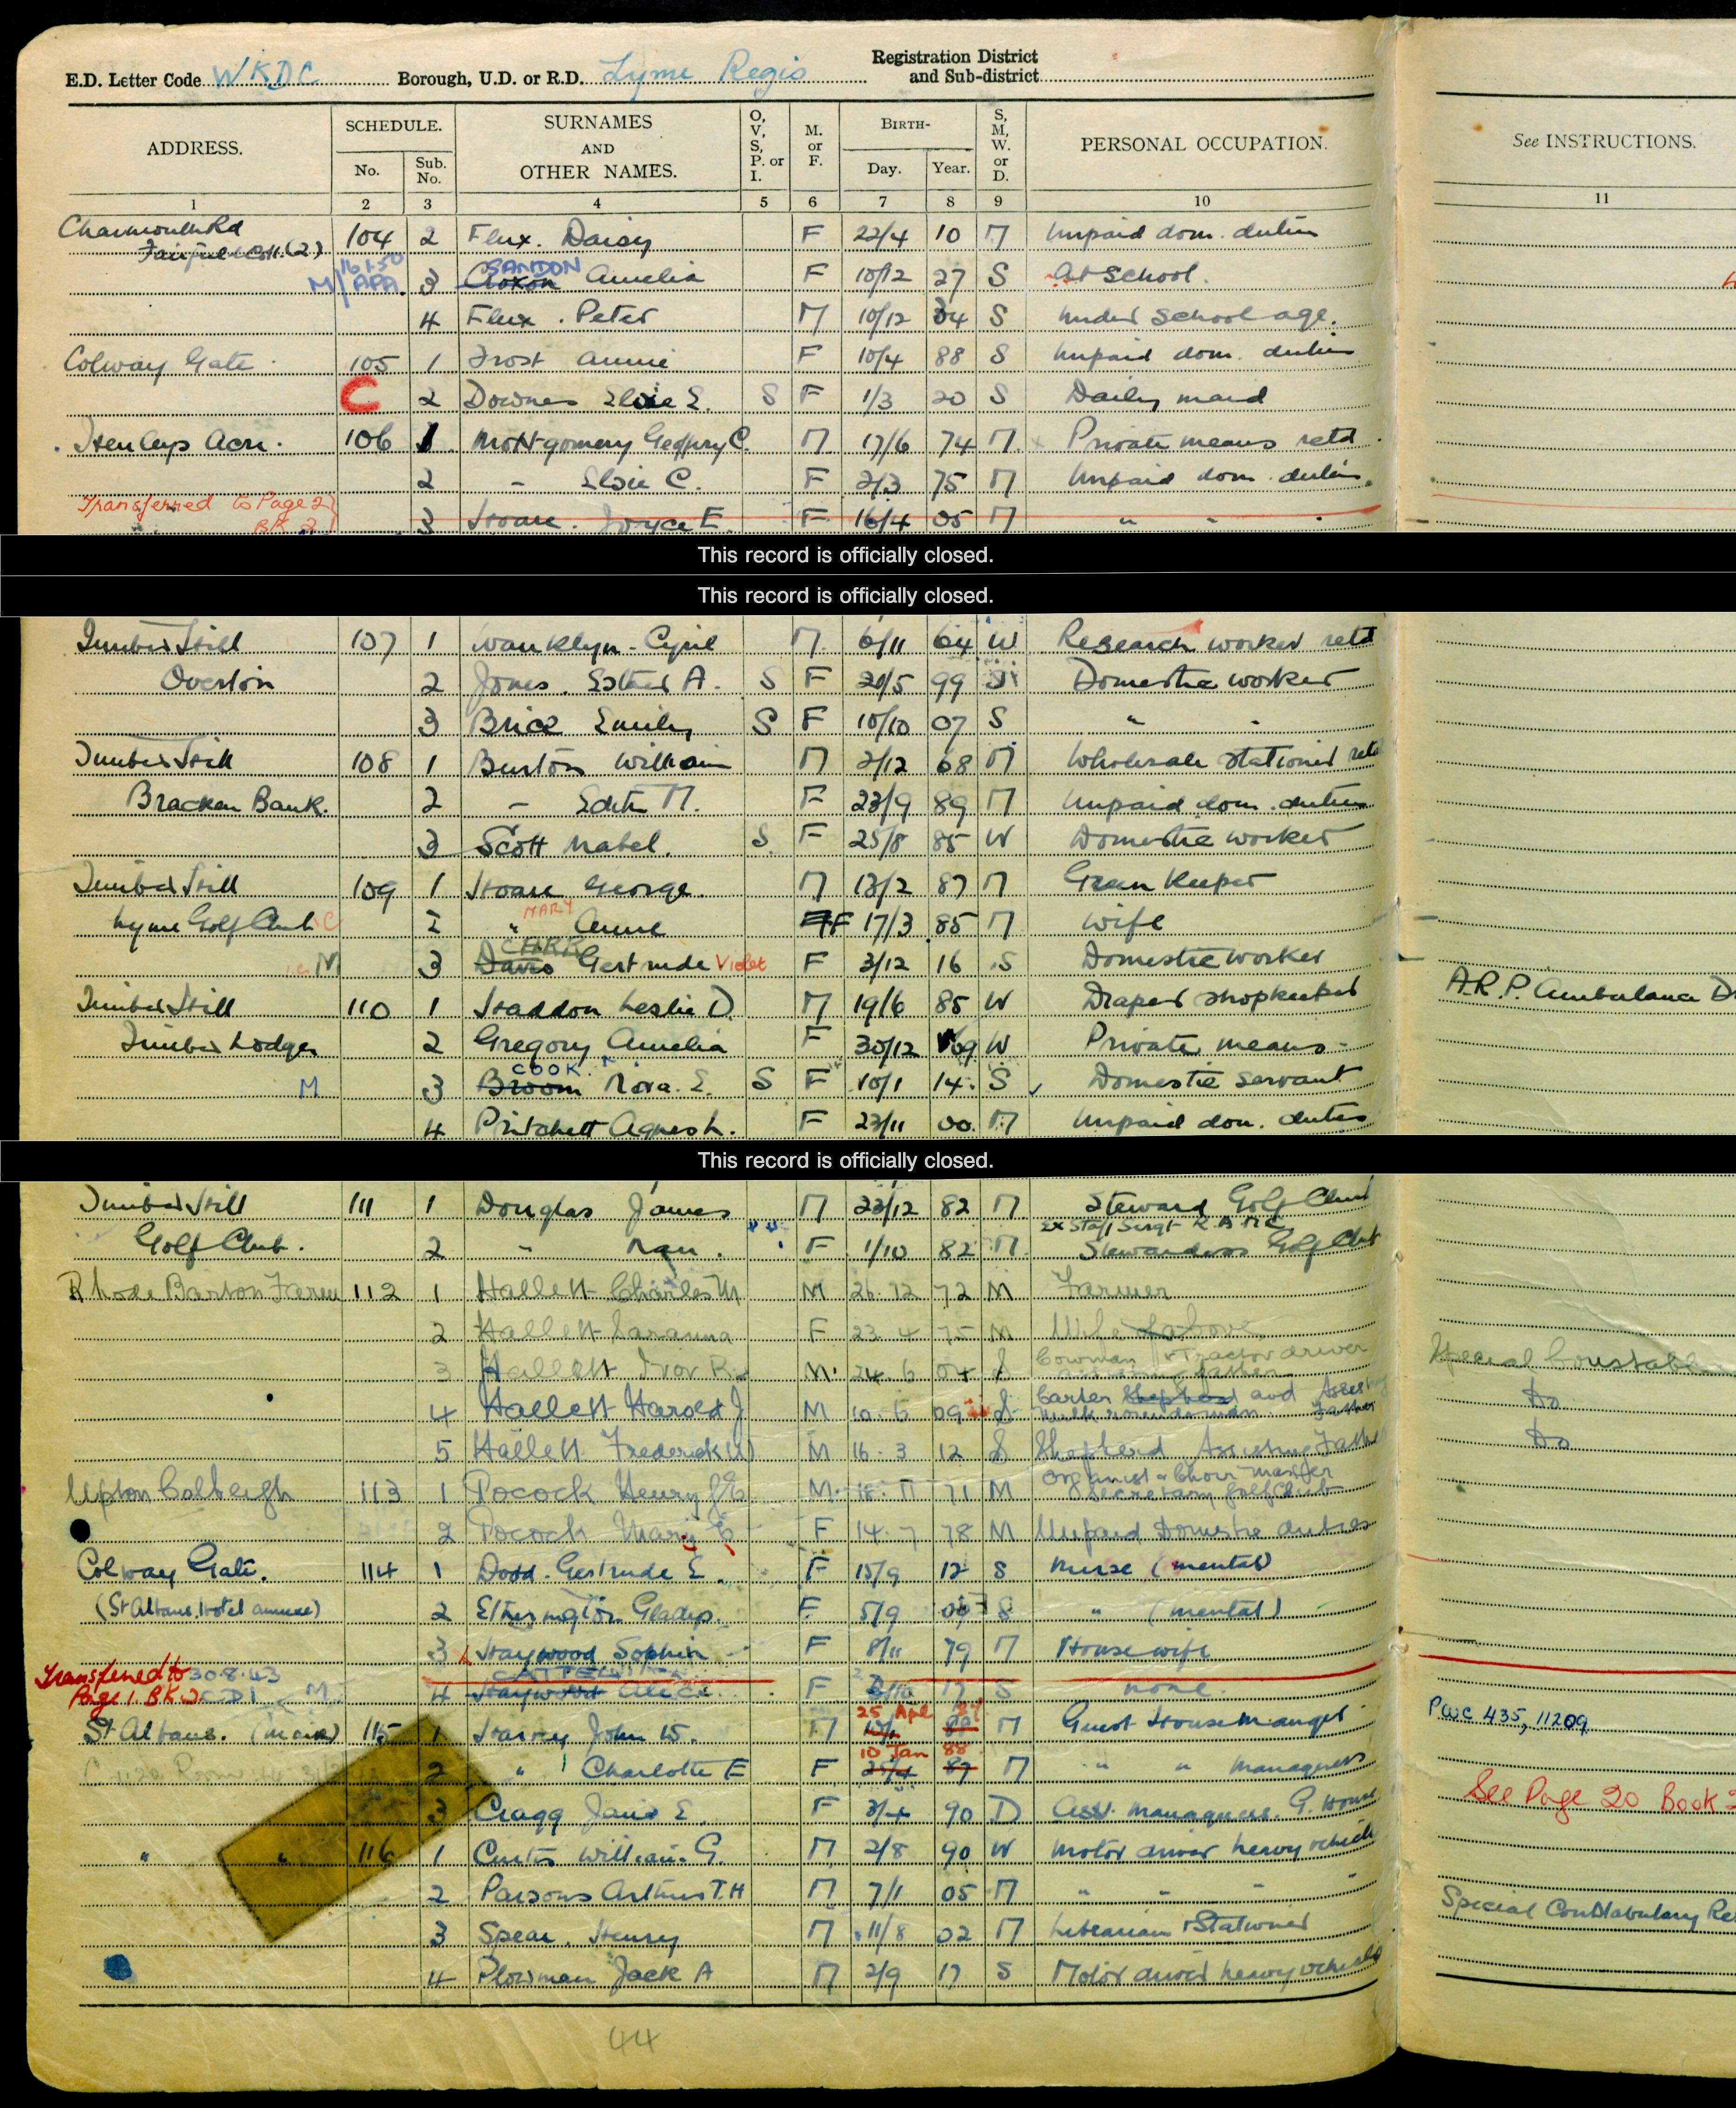 E.D. Letter Code WKDC Borough, U.D. or R.D. Lyme Regis Registration District and Sub-district
ADDRESS. SCHEDULE. No. Sub. No. SURNAMES AND OTHER NAMES. O, V, S, P. or I. M. or F. BIRTH- Day. Year. S, M, W. or D. PERSONAL OCCUPATION. See INSTRUCTIONS.
1 2 3 4 5 6 7 8 9 10 11
Charmouth Rd 104 2 Flux. Daisy F 22/4 10 M Unpaid dom. duties
Fairfield Cott. (2)
16.1.50 SANDON
M/ APA. 3 Coxon Amelia F 10/12 27 S At School.
4 Flux. Peter M 10/12 34 S Under School age.
Colway Gate. 105 1 Frost Annie F 10/4 88 S Unpaid dom. duties
C 2 Downes Elsie E. S F 1/3 20 S Daily maid
Henleys Acre. 106 1 Montgomery Geoffrey C. M 17/6 74 M Private means retd.
2 - Elsie C. F 2/3 75 M Unpaid dom. duties
Transferred to Page 2
BK 2 3 Hoare. Joyce E. F 16/4 05 M " "
This record is officially closed.
This record is officially closed.
Timber Hill 107 1 Wanklyn - Cyril M 6/11 64 W Research worker retd
Overton 2 Jones. Esther A. S F 20/5 99 S Domestic worker
3 Brice Emily S F 10/10 07 S " "
Timber Hill 108 1 Burton William M 2/12 68 M Wholesale Stationer retd
Bracken Bank. 2 - Edith M. F 23/9 89 M Unpaid dom. duties
3 Scott Mabel. S F 25/8 85 W Domestic worker
Timber Hill 109 1 Hoare George. M 13/2 87 M Green Keeper
MARY
Lyme Golf Club C 2 " Anne F 17/3 85 M wife
M 3 Davis Gertrude Violet F 3/12 16 S Domestic worker
Timber Hill 110 1 Haddon Leslie D. M 19/6 85 W Draper Shopkeeper A.R.P. Ambulance
Timber Lodge 2 Gregory Amelia F 30/12 69 W Private means -
COOK
M 3 Broom Nora. E. S F 10/1 14 S Domestic Servant
4 Pritchett Agnes L. F 23/11 00 M Unpaid dom. duties
This record is officially closed.
Timber Hill 111 1 Douglas James M 23/12 82 M Steward Golf Club
Ex Staff Sergt R.A.M.C.
Golf Club. 2 - Nan. F 1/10 82 M Stewardess Golf Club
Rhode Barton Farm 112 1 Hallett Charles M M 26.12 72 M Farmer
2 Hallett Saranna F 23.4 75 M Wife of above
3 Hallett Ivor R M 24.6 04 S Cowman & Tractor driver Special Constable
assisting father
4 Hallett Harold J M 10.6 09 S Carter Shepherd and Assisting Do
milk roundsman Father
5 Hallett Frederick W M 16.3 12 S Shepherd Assisting Father Do
Organist & Choir-master
Upton Colbeigh 113 1 Pocock Henry M 18.11 71 M Secretary Golf Club
2 Pocock Mary E F 14.7 78 M Unpaid Domestic duties
Colway Gate. 114 1 Dodd. Gertrude E. F 15/9 12 S Nurse (mental)
(St Albans Hotel annexe) 2 Etherington Gladys. F 5/9 S " (mental)
3 Haywood Sophia F 8/11 79 M Housewife
Transferred to 30.8.43
Page 1. BK 2 M 4 Haywood Alice F 17 S none.
25 Apl
St Albans. (main) 115 1 Harry John W. M M Guest House manager PWC 435, 11209
10 Jan 88
2 " Charlotte E F 25/4 87 M " " manageress
3 Cragg Janie E. F 3/4 90 D Asst. manageress. G. House See Page 20 Book
" " 116 1 Curtis William. G. M 2/8 90 W Motor driver heavy vehicle
2 Parsons Arthur T.H M 7/1 05 M " " "
3 Spear. Henry M 11/8 02 M Librarian & Stationer Special Constabulary
4 Plowman Jack A M 2/9 17 S Motor driver heavy vehicle
44